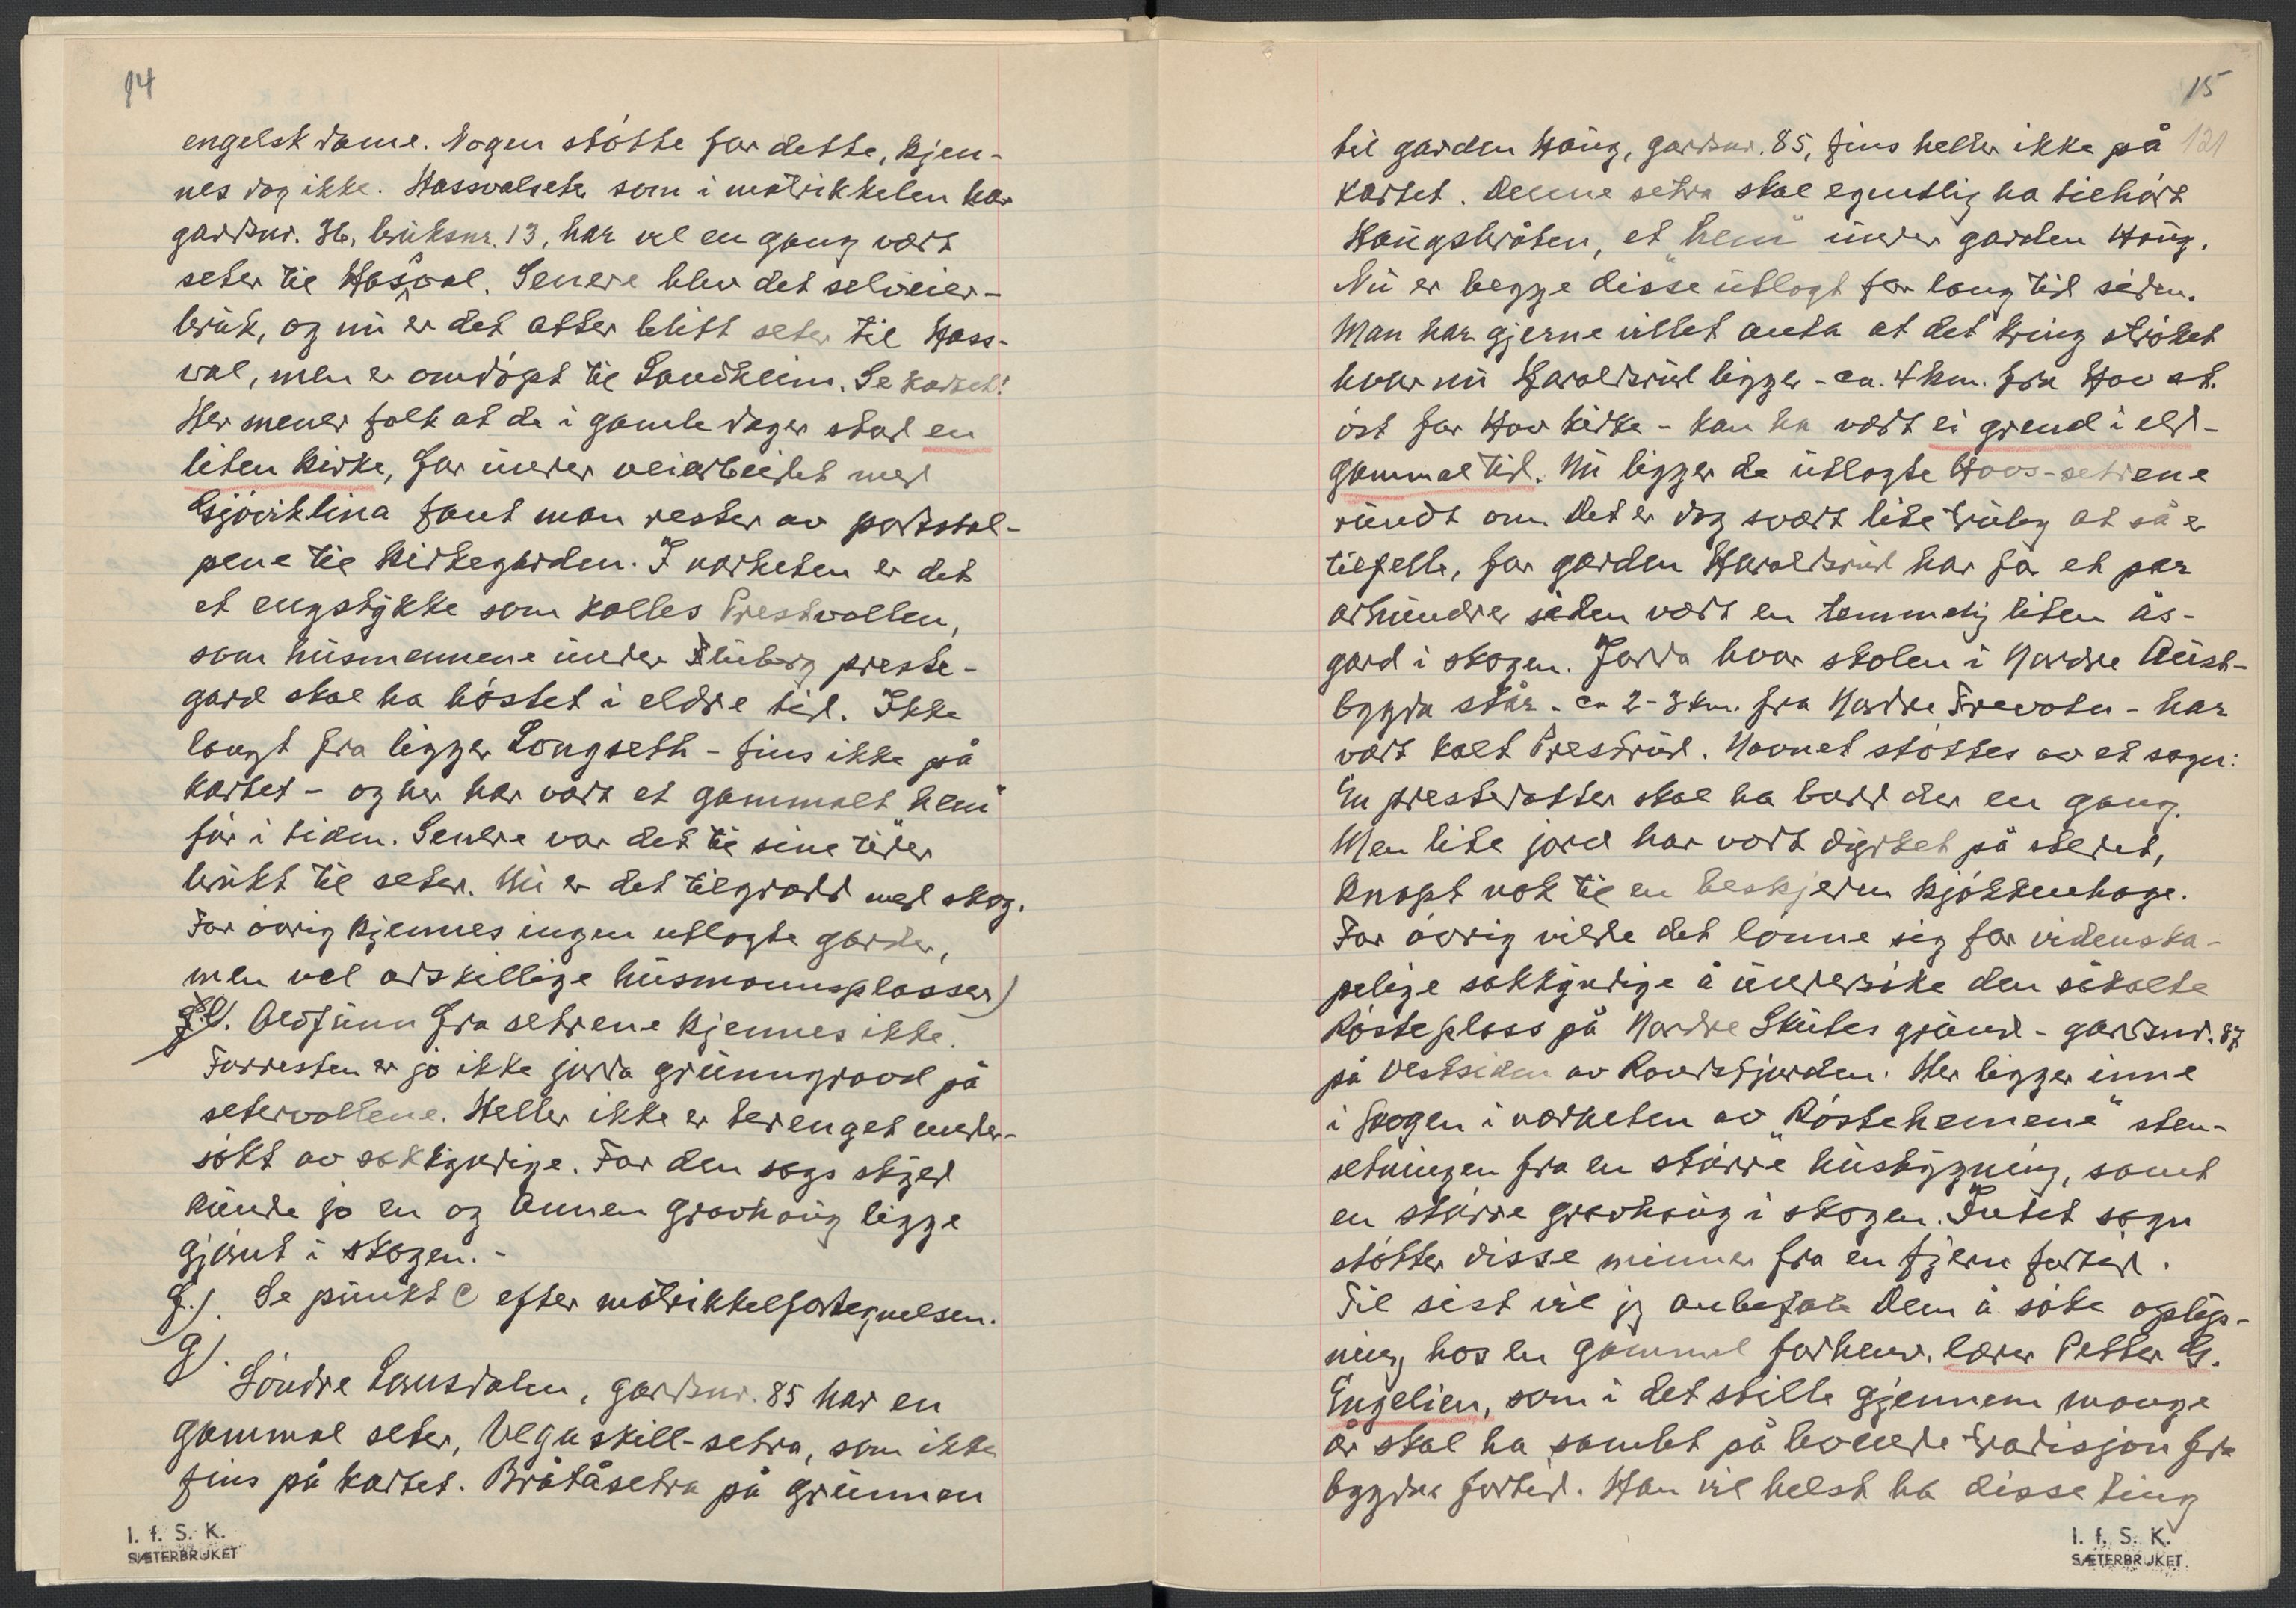 14
engelsk dame. Nogen støtte for dette, kjen-
nes dog ikke. Hassvalseter som i matrikkelen har
gardsnr. 36, bruksnr. 13, har vel en gang vært
seter til Hasvål. Senere blev det selveier-
bruk, og nu er det atter blitt seter til Hass-
val, men er omdøpt til Sandheim. Se kartet!
Her mener folk at de i gamle dager stod en
liten kirke, for under veiarbeidet med
Gjøviklina fant man rester av portstol-
pene til kirkegarden. I nærheten er det
et engstykke som kalles Prestvollen,
som husmennene under Fluberg preste-
gard skal ha høstet i eldre tid. Ikke
langt fra ligger Longseth - fins ikke på
kartet - og her har vært et gammalt "hem"
før i tiden. Senere var det til sine tider
brukt til seter. Nu er det tilgrodd med skog.
For øvrig kjennes ingen utlagte garder,
men vel adskillige husmannsplasser)
f.). Oldfunn fra setrene kjennes ikke.
Forresten er jo ikke jorda grunngravd på
setervollene. Heller ikke er terenget under-
søkt av sakkyndige. For den sags skyld
kunde jo en og annen gravhaug ligge
gjømt i skogen. -
f.). Se punkt C efter matrikkelfortegnelsen.
g).
Søndre Lausdalen, gardsnr. 85 har en
gammal seter, Velgaskill-setra, som ikke
fins på kartet. Bråtåsetra på grunnen
I. f. S. K.
SÆTERBRUKET
15
121
til garden Haug, gardsnr. 85, fins heller ikke på
kartet. Denne setra skal egentlig ha tilhørt
Haugsbråten, et "hem" under garden Haug.
Nu er begge disse utlagt for lang tid siden.
Man har gjerne villet anta at det kring strøket
hvor nu Haraldsrud ligger - ca. 4 km. fra Hov st.
øst for Hov kirke - kan ha vært ei grend i eld-
gammal tid. Nu ligger de utlagte Hovs-setrene
rundt om. Det er dog svært lite trulig at så er
tilfelle, for garden Haraldsrud har for et par
århundrer siden vært en temmelig liten ås-
gard i skogen. Jorda hvor skolen i Nordre Aust-
bygda står - ca 2-3 km. fra Nordre Trevatn - har
vært kalt Prestrud. Navnet støttes av et sagn:
En prestedatter skal ha bodd der en gang.
Men lite jord har vært dyrket på stedet,
knapt nok til en beskjeden kjøkkenhage.
For øvrig vilde det lønne sig for videnska-
pelige sakkyndige å undersøke den såkalte
Røsteplass på Nordre Skutes grund - gardsnr. 87
på vestsiden av Randsfjorden. Her ligger inne
i skogen i nærheten av "Røstehemene" sten-
setningen fra en større husbygning, samt
en større gravhaug i skogen. Intet sagn
støtter disse minner fra en fjern fortid.
Til sist vil jeg anbefale Dem å søke oplys-
ning hos en gammel forhenv. lærer Petter G.
Engelien, som i det stille gjennem mange
år skal ha samlet på levende tradisjon fra
bygdas fortid. Han vil helst ha disse ting
I. f. S. K.
SÆTERBRUKET